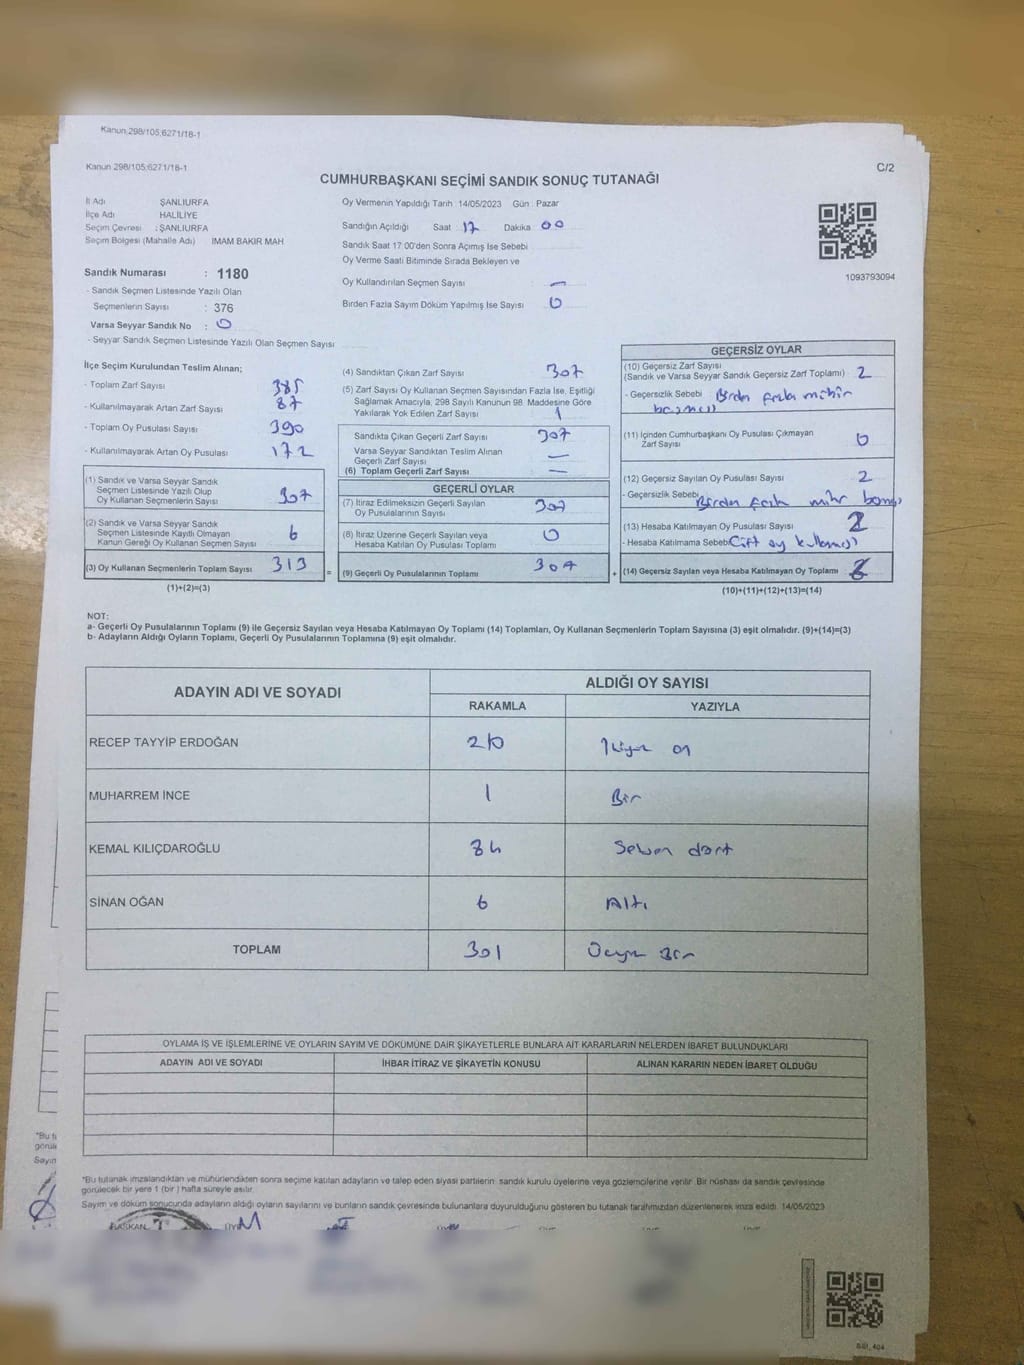 Kanun 298/105;6271/18-1
Kanun 298/105;6271/18-1
C/2
CUMHURBAŞKANI SEÇİMİ SANDIK SONUÇ TUTANAĞI
İl Adı ŞANLIURFA
İlçe Adı HALİLİYE
Seçim Çevresi : ŞANLIURFA
Seçim Bölgesi (Mahalle Adı) IMAM BAKIR MAH
Sandık Numarası : 1180
- Sandık Seçmen Listesinde Yazılı Olan
Seçmenlerin Sayısı : 376
Varsa Seyyar Sandık No : 0
- Seyyar Sandık Seçmen Listesinde Yazılı Olan Seçmen Sayısı
Oy Vermenin Yapıldığı Tarih : 14/05/2023 Gün : Pazar
Sandığın Açıldığı Saat 17 Dakika 00
Sandık Saat 17:00'den Sonra Açımış İse Sebebi
Oy Verme Saati Bitiminde Sırada Bekleyen ve
Oy Kullandırılan Seçmen Sayısı : —
Birden Fazla Sayım Döküm Yapılmış İse Sayısı 0
1093793094
İlçe Seçim Kurulundan Teslim Alınan;
- Toplam Zarf Sayısı 385
- Kullanılmayarak Artan Zarf Sayısı 87
- Toplam Oy Pusulası Sayısı 390
- Kullanılmayarak Artan Oy Pusulası 172
(1) Sandık ve Varsa Seyyar Sandık
Seçmen Listesinde Yazılı Olup
Oy Kullanan Seçmenlerin Sayısı 307
(2) Sandık ve Varsa Seyyar Sandık
Seçmen Listesinde Kayıtlı Olmayan
Kanun Gereği Oy Kullanan Seçmen Sayısı 6
(3) Oy Kullanan Seçmenlerin Toplam Sayısı 313
(1)+(2)=(3)
(4) Sandıktan Çıkan Zarf Sayısı 307
(5) Zarf Sayısı Oy Kullanan Seçmen Sayısından Fazla İse, Eşitliği
Sağlamak Amacıyla, 298 Sayılı Kanunun 98. Maddesine Göre
Yakılarak Yok Edilen Zarf Sayısı 1
Sandıkta Çıkan Geçerli Zarf Sayısı 307
Varsa Seyyar Sandıktan Teslim Alınan
Geçerli Zarf Sayısı —
(6) Toplam Geçerli Zarf Sayısı —
GEÇERLİ OYLAR
(7) İtiraz Edilmeksizin Geçerli Sayılan
Oy Pusulalarının Sayısı 307
(8) İtiraz Üzerine Geçerli Sayılan veya
Hesaba Katılan Oy Pusulası Toplamı 0
= (9) Geçerli Oy Pusulalarının Toplamı 307 +
GEÇERSİZ OYLAR
(10) Geçersiz Zarf Sayısı
(Sandık ve Varsa Seyyar Sandık Geçersiz Zarf Toplamı) 2
- Geçersizlik Sebebi Birden fazla mühür
(11) İçinden Cumhurbaşkanı Oy Pusulası Çıkmayan
Zarf Sayısı 0
(12) Geçersiz Sayılan Oy Pusulası Sayısı 2
- Geçersizlik Sebebi
(13) Hesaba Katılmayan Oy Pusulası Sayısı 2
- Hesaba Katılmama Sebebi Çift oy
(14) Geçersiz Sayılan veya Hesaba Katılmayan Oy Toplamı
(10)+(11)+(12)+(13)=(14)
NOT:
a- Geçerli Oy Pusulalarının Toplamı (9) ile Geçersiz Sayılan veya Hesaba Katılmayan Oy Toplamı (14) Toplamları, Oy Kullanan Seçmenlerin Toplam Sayısına (3) eşit olmalıdır. (9)+(14)=(3)
b- Adayların Aldığı Oyların Toplamı, Geçerli Oy Pusulalarının Toplamına (9) eşit olmalıdır.
ADAYIN ADI VE SOYADI
ALDIĞI OY SAYISI
RAKAMLA YAZIYLA
RECEP TAYYİP ERDOĞAN 210 İkiyüz on
MUHARREM İNCE 1 Bir
KEMAL KILIÇDAROĞLU 84 Seksen dört
SİNAN OĞAN 6 Altı
TOPLAM 301 Üçyüz Bir
OYLAMA İŞ VE İŞLEMLERİNE VE OYLARIN SAYIM VE DÖKÜMÜNE DAİR ŞİKAYETLERLE BUNLARA AİT KARARLARIN NELERDEN İBARET BULUNDUKLARI
ADAYIN ADI VE SOYADI İHBAR İTİRAZ VE ŞİKAYETİN KONUSU ALINAN KARARIN NEDEN İBARET OLDUĞU
"Bu t
görüle
Sayın
*Bu tutanak imzalandıktan ve mühürlendikten sonra seçime katılan adayların ve talep eden siyasi partilerin sandık kurulu üyelerine veya gözlemcilerine verilir. Bir nüshası da sandık çevresinde
görülecek bir yere 1 (bir ) hafta süreyle asılır.
Sayım ve döküm sonucunda adayların aldığı oyların sayılarını ve bunların sandık çevresinde bulunanlara duyurulduğunu gösteren bu tutanak tarafımızdan düzenlenerek imza edildi. 14/05/2023
BAŞKAN